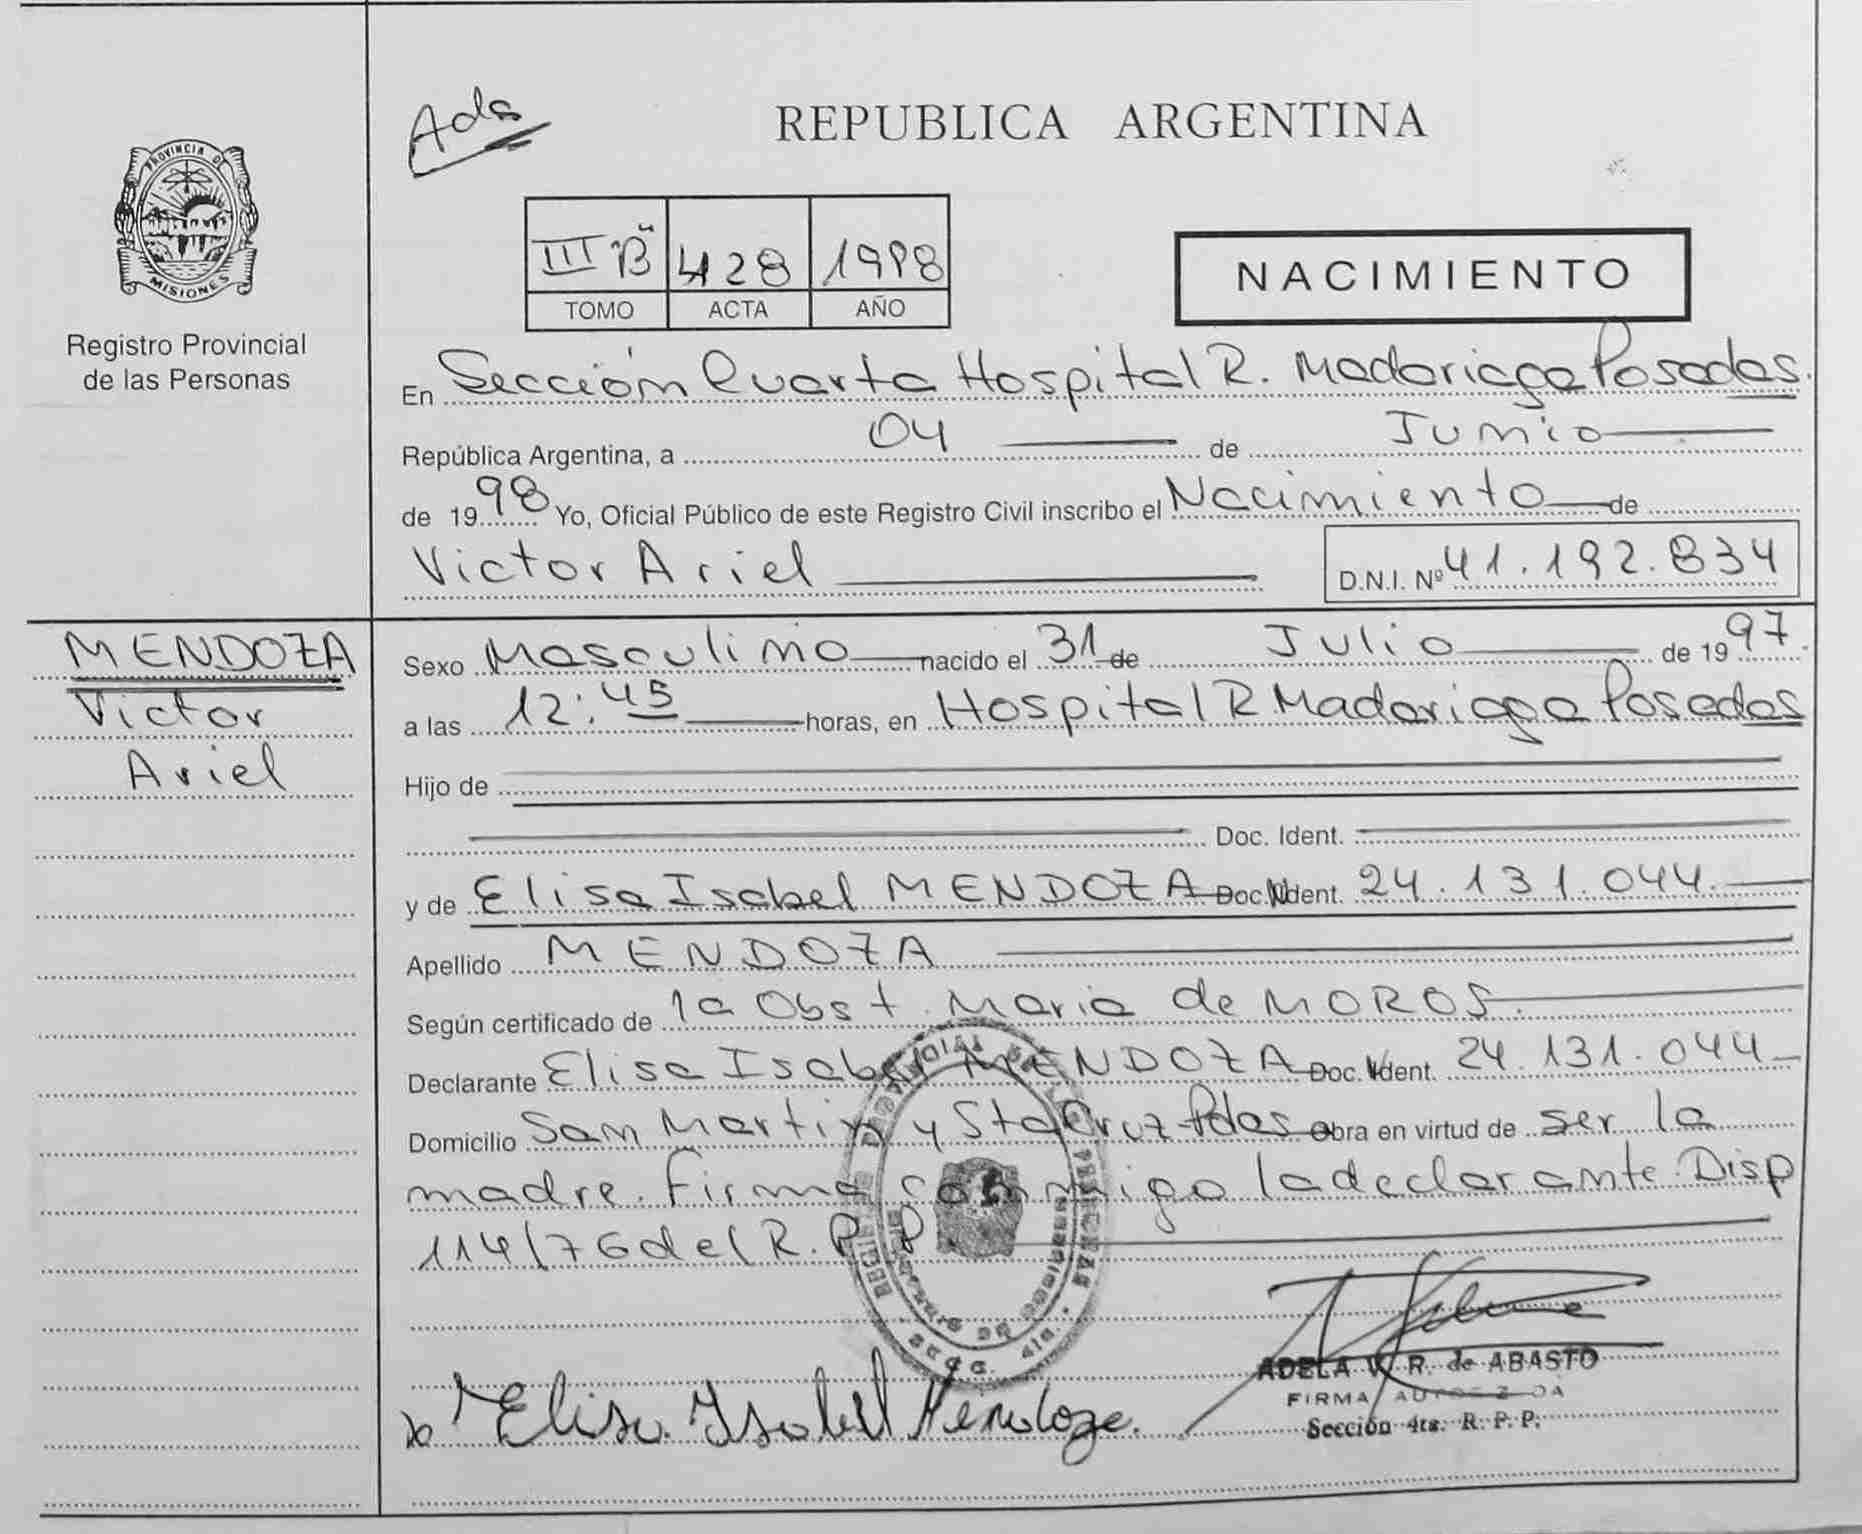 PROVINCIA DE
MISIONES
Registro Provincial
de las Personas
Ada
REPUBLICA ARGENTINA
III "B" 428 1998
TOMO ACTA AÑO
NACIMIENTO
En Sección Cuarta Hospital R. Madariaga Posadas.
República Argentina, a 04 de Junio
de 1998 Yo, Oficial Público de este Registro Civil inscribo el Nacimiento de
Victor Ariel D.N.I. Nº 41.192.834
MENDOZA
Victor
Ariel
Sexo Masculino nacido el 31 de Julio de 1997.
a las 12:45 horas, en Hospital R Madariaga Posadas
Hijo de
Doc. Ident.
y de Elisa Isabel MENDOZA Doc. Ident. 24.131.044.
Apellido MENDOZA
Según certificado de la Obst. Maria de MOROS.
Declarante Elisa Isabel MENDOZA Doc. Ident. 24.131.044
Domicilio San Martin y Sta Cruz Pdas obra en virtud de ser la
madre. Firma conmigo la declarante. Disp
114/76 del R.P.P.
Elisa Isabel Mendoza.
ADELA V. R. de ABASTO
FIRMA AUTORIZADA
Sección 4ta. R. P. P.